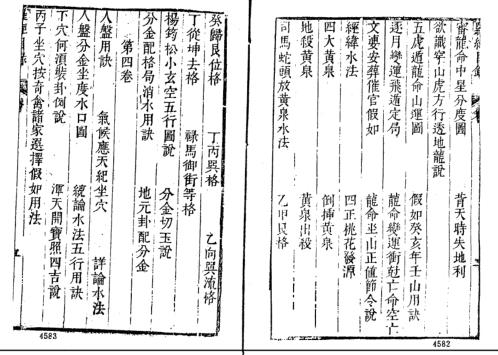 龍命中星分度圖 背天時失地利
欲識穿山虎方行透地龍說
五虎遁龍命山運圖 假如癸亥年壬山用訣
逐月變運飛遁定局 龍命變運衝尅亡命空亡
文要安葬催官假如 龍命坐山正値節令說
經緯水法 四正桃花發源
四大黃泉 倒挿黃泉
地殺黃泉 黃泉出殺
司馬蛇頭放黃泉水法 乙甲艮格
4582
癸歸艮位格 丁丙巽格 乙向巽流格
丁從坤去格 祿馬御街等格
楊筠松小玄空五行圖說 分金切玉說
分金配格局消水用訣 地元卦配分金
第四卷
人盤用訣 氣候應天紀坐穴 詳論水法
人盤分金坐度水口圖 總論水法五行用訣
下穴何須裝卦例說 渾天開寶照四吉說
丙子坐穴按奇禽諸家選擇假如用法
4583